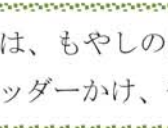 は、もやしの
ッダーかけ、